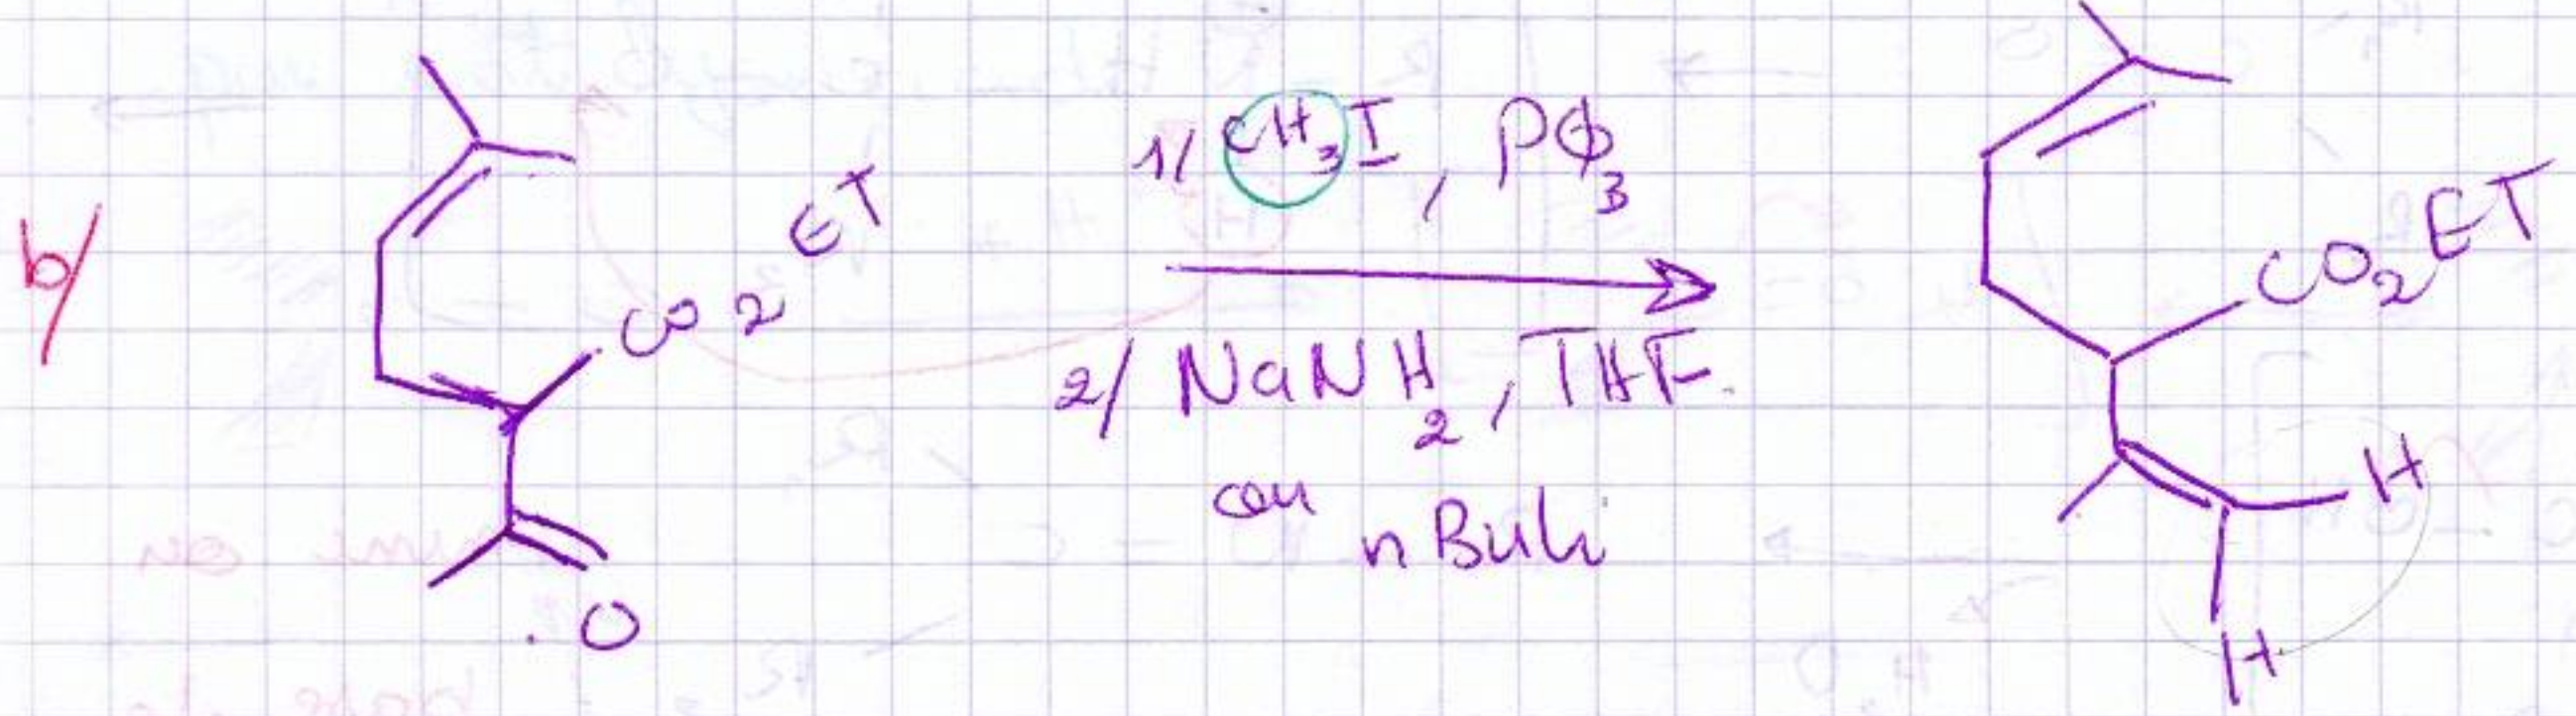 b/
CO2ET
O
1/ CH3I, PΦ3
2/ NaNH2, THF.
ou nBuLi
CO2ET
H
H